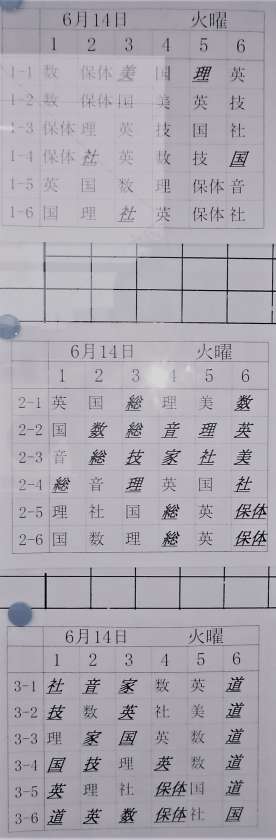 6月14日 火曜
1 2 3 4 5 6
1-1 数 保体 美 国 理 英
1-2 数 保体 国 美 英 技
1-3 保体 理 英 技 国 社
1-4 保体 社 英 数 技 国
1-5 英 国 数 理 保体 音
1-6 国 理 社 英 保体 社
6月14日 火曜
1 2 3 4 5 6
2-1 英 国 総 理 美 数
2-2 国 数 総 音 理 英
2-3 音 総 技 家 社 美
2-4 総 音 理 英 国 社
2-5 理 社 国 総 英 保体
2-6 国 数 理 総 英 保体
6月14日 火曜
1 2 3 4 5 6
3-1 社 音 家 数 英 道
3-2 技 数 英 社 美 道
3-3 理 家 国 英 数 道
3-4 国 技 理 英 数 道
3-5 英 理 社 保体 国 道
3-6 道 英 数 保体 社 国